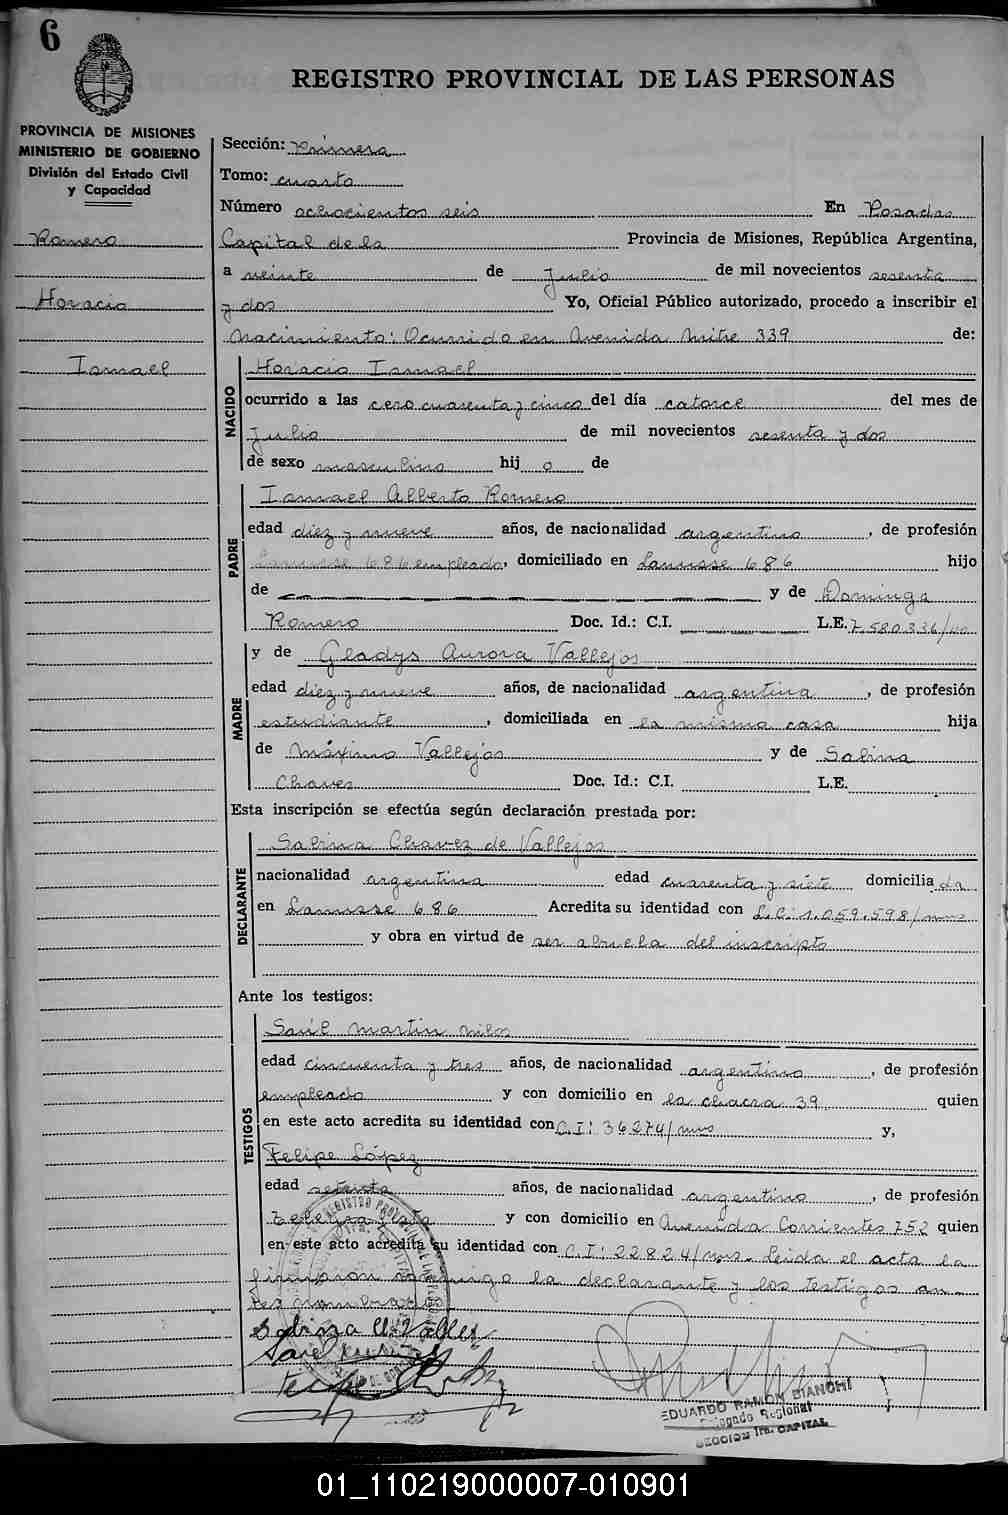 6
REGISTRO PROVINCIAL DE LAS PERSONAS
PROVINCIA DE MISIONES
MINISTERIO DE GOBIERNO
División del Estado Civil
y Capacidad
Romero
Horacio
Ismael
Sección: Primera
Tomo: cuarto
Número ochocientos seis En Posadas
Capital de la Provincia de Misiones, República Argentina,
a veinte de Julio de mil novecientos sesenta
y dos Yo, Oficial Público autorizado, procedo a inscribir el
Nacimiento: Ocurrido en Avenida Mitre 339 de:
NACIDO
Horacio Ismael
ocurrido a las cero cuarenta y cinco del día catorce del mes de
Julio de mil novecientos sesenta y dos
de sexo masculino hij o de
PADRE
Ismael Alberto Romero
edad diez y nueve años, de nacionalidad argentino, de profesión
Lanusse 686 empleado, domiciliado en Lanusse 686 hijo
de y de Dominga
Romero Doc. Id.: C.I. L.E. 7.580.336/
MADRE
y de Gladys Aurora Vallejos
edad diez y nueve años, de nacionalidad argentina, de profesión
estudiante, domiciliada en la misma casa hija
de Máximo Vallejos y de Sabina
Chaves Doc. Id.: C.I. L.E.
Esta inscripción se efectúa según declaración prestada por:
DECLARANTE
Sabina Chavez de Vallejos
nacionalidad argentina edad cuarenta y siete domicilia da
en Lanusse 686 Acredita su identidad con L.C: 1.059.598/mns
y obra en virtud de ser abuela del inscripto
Ante los testigos:
TESTIGOS
Saúl Martin
edad cincuenta y tres años, de nacionalidad argentino, de profesión
empleado y con domicilio en la chacra 39 quien
en este acto acredita su identidad con C.I: 36274/mns y,
Felipe López
edad setenta años, de nacionalidad argentino, de profesión
y con domicilio en Avenida Corrientes 752 quien
en este acto acredita su identidad con C.I: 22824/mns. Leida el acta la
firmaron conmigo la declarante y los testigos an-
tes nombrados
EDUARDO RAMON BIANCHI
Delegado Regional
SECCION 1ra. CAPITAL
01_110219000007-010901